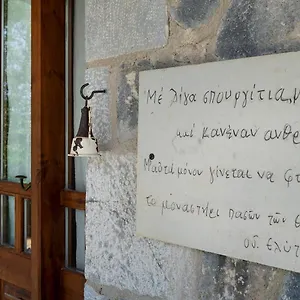 Μέ λίγα σπουργίτια,
καί κανέναν ανθρ
Μ'αυτά μόνον γίνεται να φτ
το μοναστήρι πασών των
οδ. Ελύτ